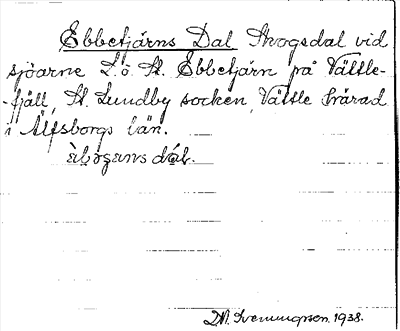 Ebbetjärns Dal Skogsdal vid
sjöarne L. o. St. Ebbetjärn på Vättle-
-fjäll, St. Lundby socken, Vättle härad
i Älfsborgs län.
dal.
Svenungson. 1938.